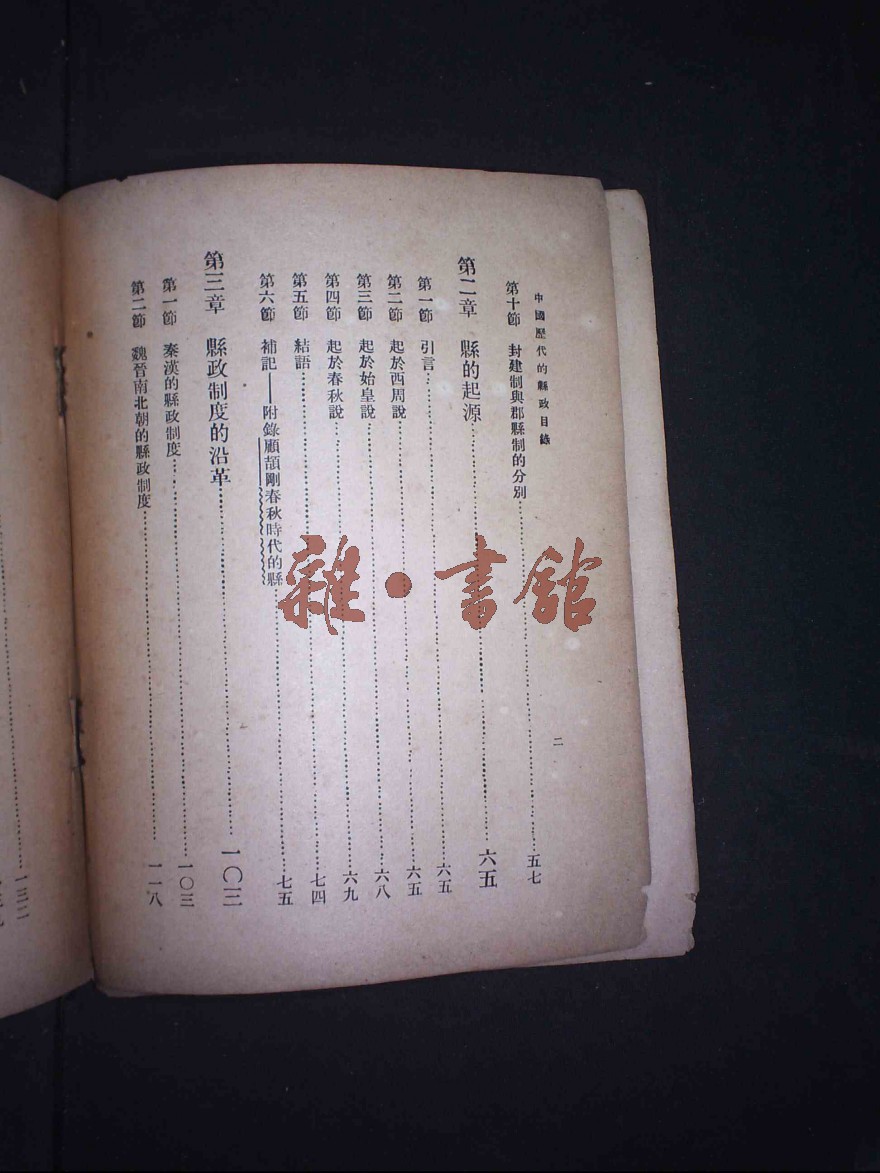 中國歷代的縣政目錄
二
第十節 封建制與郡縣制的分別……五七
第二章 縣的起源……六五
第一節 引言……六五
第二節 起於西周說……六五
第三節 起於始皇說……六八
第四節 起於春秋說……六九
第五節 結語……七四
第六節 補記——附錄顧頡剛春秋時代的縣……七五
第三章 縣政制度的沿革……一〇三
第一節 秦漢的縣政制度……一〇三
第二節 魏晉南北朝的縣政制度……一一八
一三二
雜·書館